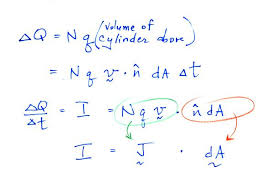 ΔQ = N q (volume of cylinder above)
= N q v · n̂ dA Δt
ΔQ/Δt = I = N q v · n̂ dA
I = J · dA